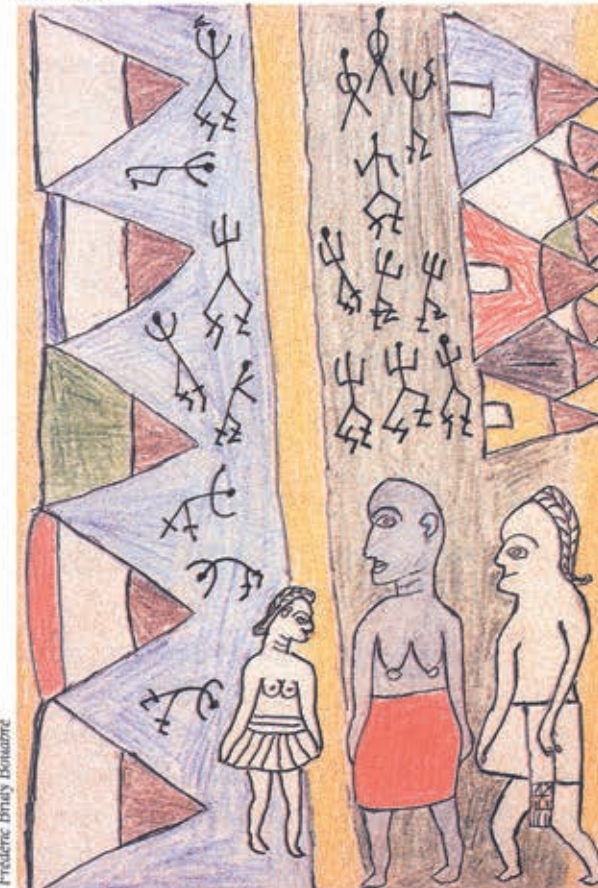 Frédéric Bruly Bouabré